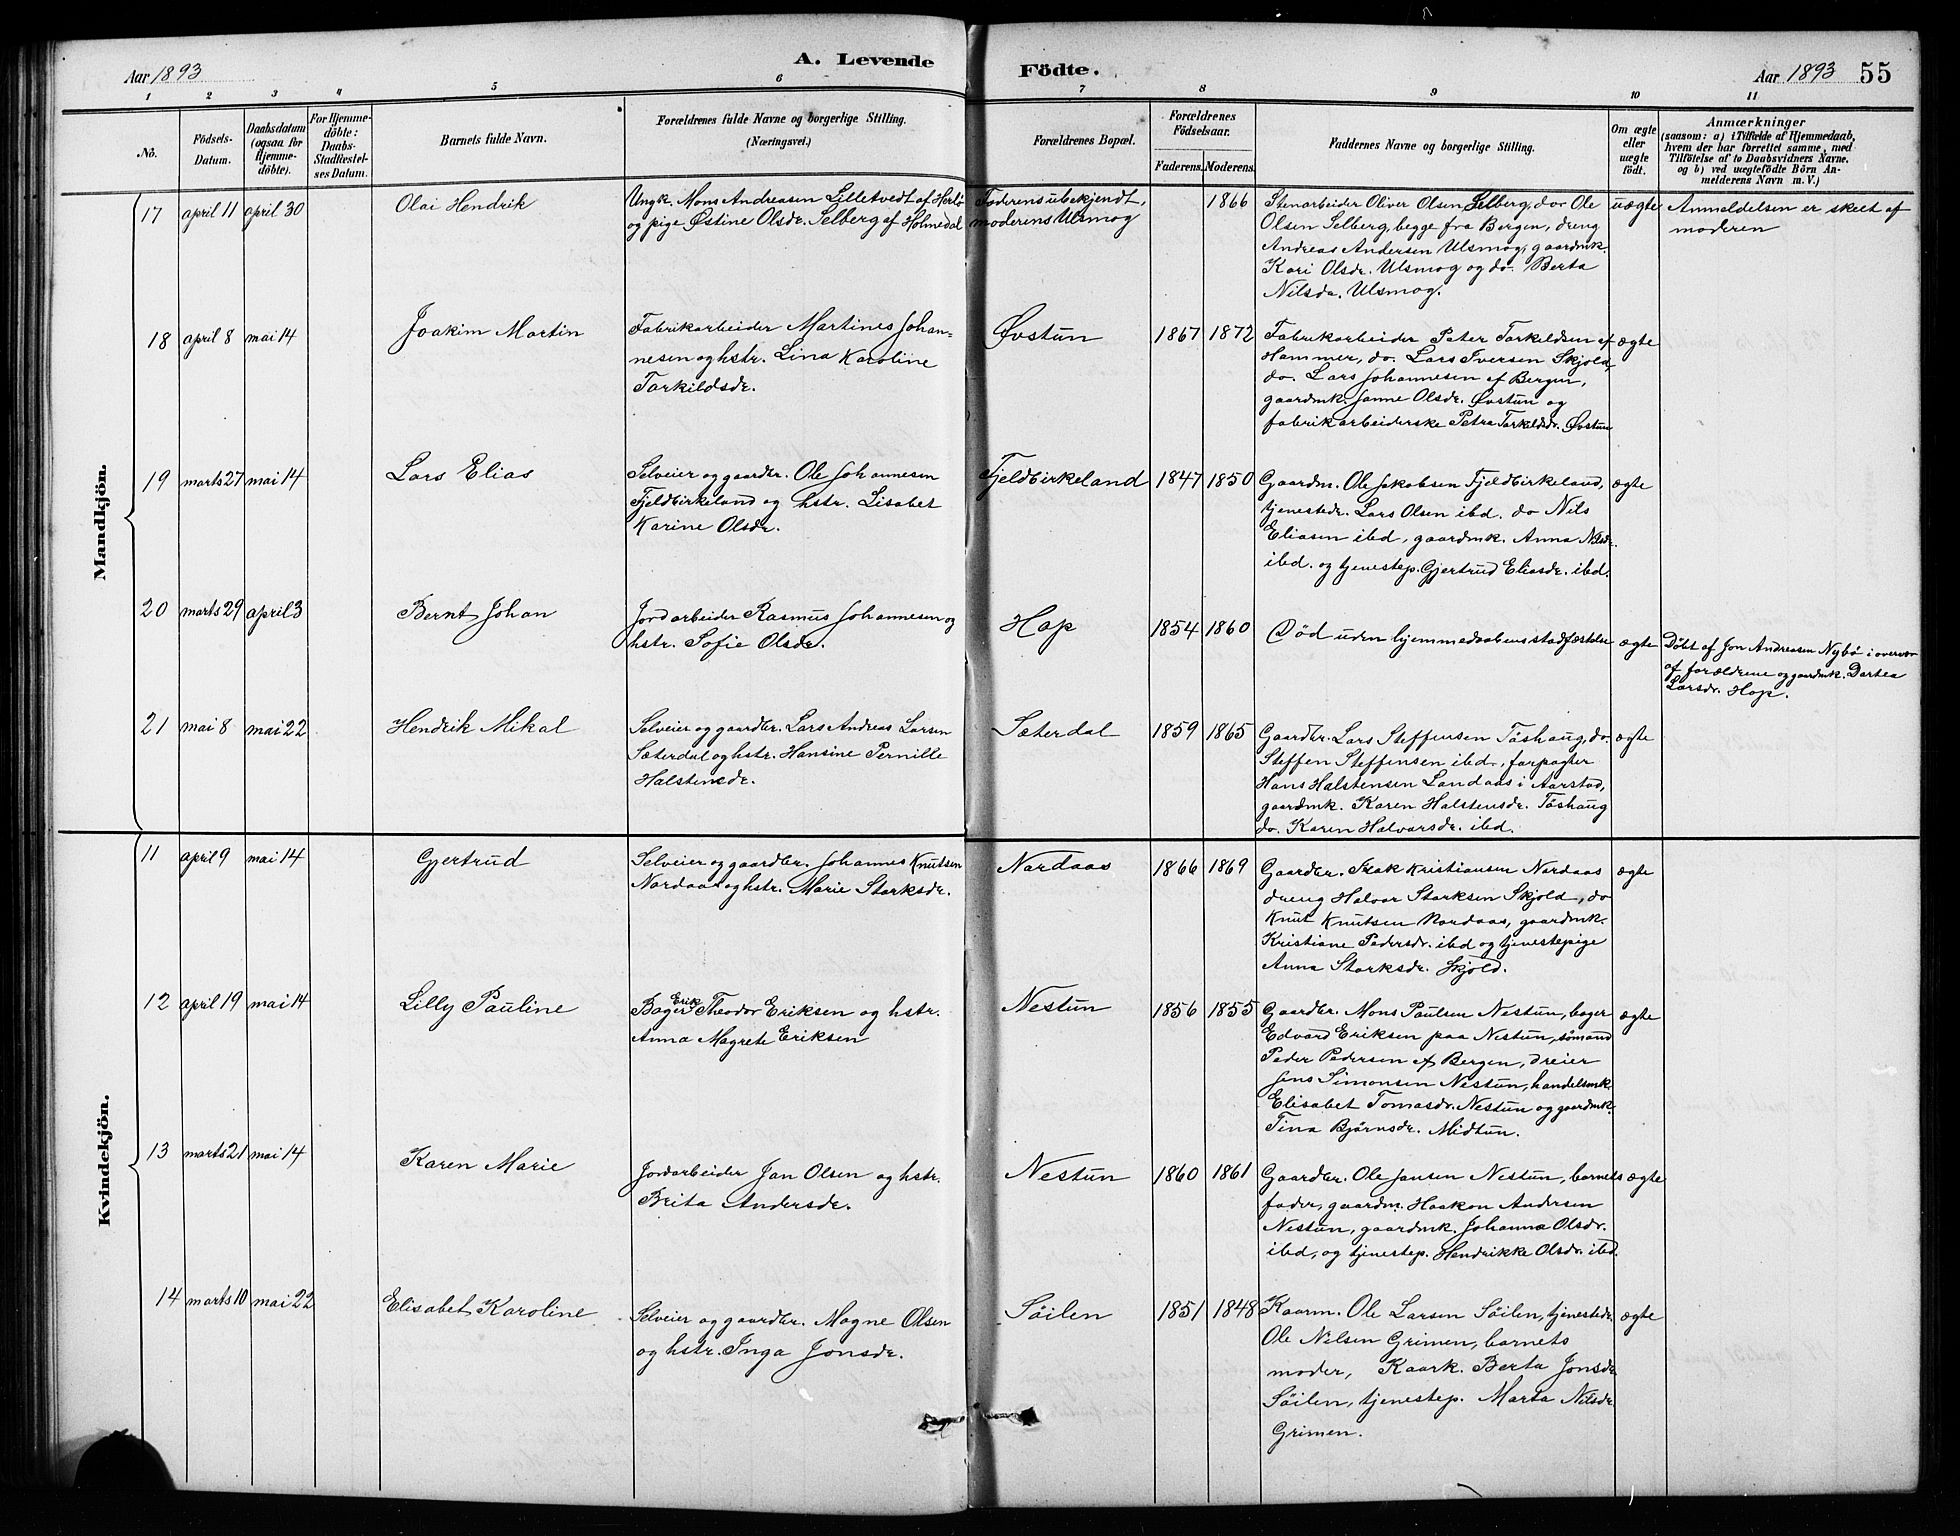 Aar 1893
A. Levende
Födte.
Aar 1893
55
1 2 3 4 5 6 7 8 9 10 11
No.
Födsels-
Datum.
Daabsdatum
(ogsaa for
Hjemme-
döbte).
For Hjemme-
döbte:
Daabs-
Stadfæstel-
ses Datum.
Barnets fulde Navn.
Forældrenes fulde Navne og borgerlige Stilling.
(Næringsvei.)
Forældrenes Bopæl.
Forældrenes
Födselsaar.
Faderens. Moderens.
Faddernes Navne og borgerlige Stilling.
Om ægte
eller
uægte
födt.
Anmærkninger
(saasom: a) i Tilfælde af Hjemmedaab,
hvem der har forrettet samme, med
Tilföielse af to Daabsvidners Navne.
og b) ved uægtefödte Börn An-
melderens Navn m. V.)
Mandkjön.
17 april 11 april 30
Olai Hendrik
Ungk. Mons Andreasen Lilletvedt af Herlø
og pige Østine Olsdr. Selberg af Holmedal
Faderens ubekjendt,
moderens Ulsmog
1866
Stenarbeider Oliver Olsen Selberg, do Ole
Olsen Selberg, begge fra Bergen, dreng
Andreas Andersen Ulsmog, gaardmk.
Kari Olsdr. Ulsmog og do. Berta
Nilsdr. Ulsmog.
uægte
Anmeldelsen er skeet af
moderen
18 april 8 mai 14
Joakim Martin
Fabrikarbeider Martines Johan-
nesen og hstr. Lina Karoline
Torkildsdr.
Øvstun
1867 1872
Fabrikarbeider Peter Torkildsen af
Hammer, do. Lars Iversen Skjold,
do. Lars Johannesen af Bergen,
gaardmk. Janne Olsdr. Øvstun og
fabrikarbeiderske Petra Torkeldsdr. Øvstun
ægte
19 marts 27 mai 14
Lars Elias
Selveier og gaardbr. Ole Johannesen
Fjeldbirkeland og hstr. Lisabet
Karine Olsdr.
Fjeldbirkeland
1847 1850
Gaardm. Ole Jakobsen Fjeldbirkeland,
tjenestedr. Lars Olsen ibd. do Nils
Eliasen ibd, gaardmk. Anna Nilsdr.
ibd. og tjenestep. Gjertrud Eliasdr. ibd.
ægte
20 marts 29 april 3
Bernt Johan
Jordarbeider Rasmus Johannesen og
hstr. Sofie Olsdr.
Hop
1854 1860
Død uden hjemmedaabens stadfæstelse
ægte
Døbt af Jon Andreasen Nybø i overvær
af forældrene og gaardmk. Dortea
Larsdr. Hop.
21 mai 8 mai 22
Hendrik Mikal
Selveier og gaardbr. Lars Andreas Larsen
Sæterdal og hstr. Hansine Pernille
Halstensdr.
Sæterdal
1859 1865
Gaardbr. Lars Steffensen Töshaug, do.
Steffen Steffensen ibd., forpagter
Hans Halstensen Landaas i Aarstad,
gaardmk. Karen Halstensdr. Töshaug
do. Karen Halvorsdr. ibd.
ægte
Kvindekjön.
11 april 9 mai 14
Gjertrud
Selveier og gaardbr. Johannes Knutsen
Nordaas og hstr. Marie Storksdr.
Nordaas
1866 1869
Gaardbr. Isak Kristiansen Nordaas
dreng Halvor Storksen Skjold, do
Knut Knutsen Nordaas, gaardmk.
Kristiane Pedersdr. ibd og tjenestepige
Anna Storksdr. Skjold.
ægte
12 april 19 mai 14
Lilly Pauline
Bager Erik Theodor Eriksen og hstr.
Anna Magrete Eriksen
Nestun
1856 1855
Gaardbr. Mons Paulsen Nestun, bager
Edvard Eriksen paa Nestun, sømand
Peder Pedersen af Bergen, dreier
Jens Simonsen Nestun, handelsmk.
Elisabet Tomasdr. Nestun og gaardmk.
Tina Bjørnsdr. Midtun.
ægte
13 marts 21 mai 14
Karen Marie
Jordarbeider Jan Olsen og hstr.
Brita Andersdr.
Nestun
1860 1861
Gaardbr. Ole Jansen Nestun, barnets
fader, gaardm. Haakon Andersen
Nestun, gaardmk. Johanna Olsdr.
ibd, og tjenestep. Hendrikke Olsdr. ibd.
ægte
14 marts 10 mai 22
Elisabet Karoline
Selveier og gaardbr. Mogne Olsen
og hstr. Inga Jonsdr.
Söilen
1851 1848
Kaarm. Ole Larsen Söilen, tjenestedr.
Ole Nilsen Grimen, barnets
moder, Kaark. Berta Jonsdr.
Söilen, tjenestep. Marta Nilsdr.
Grimen.
ægte